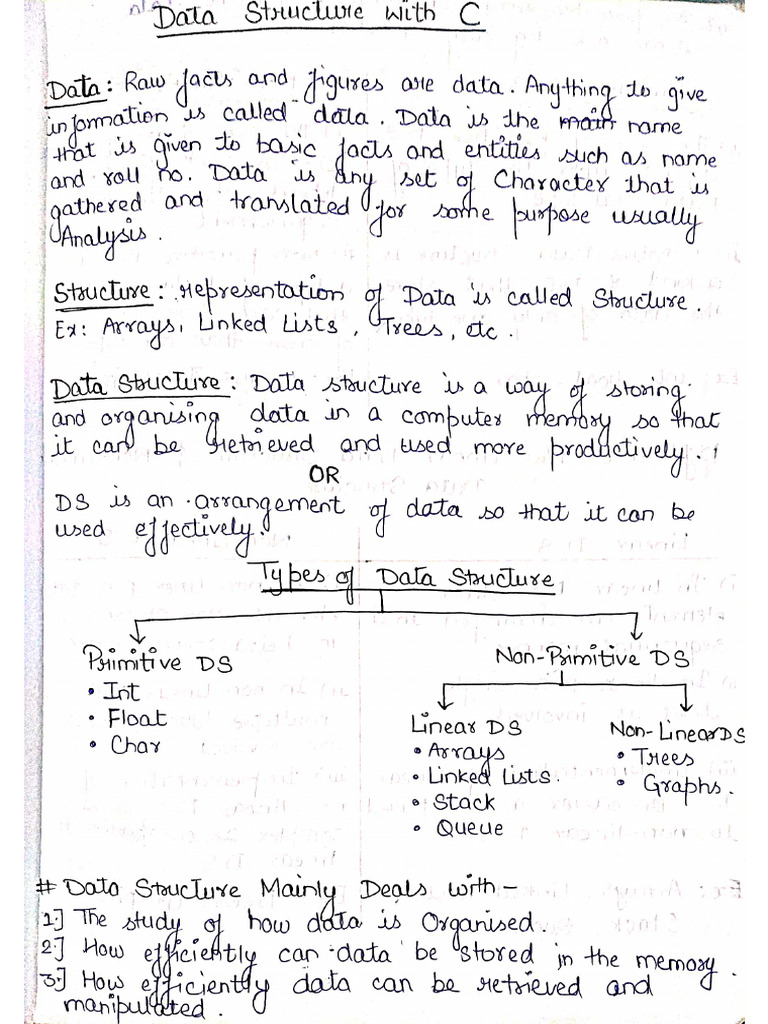 Data Structure with C
Data: Raw facts and figures are data. Anything to give
information is called data. Data is the main name
that is given to basic facts and entities such as name
and roll no. Data is any set of Character that is
gathered and translated for some purpose usually
Analysis.
Structure: representation of Data is called Structure.
Ex: Arrays, Linked Lists, Trees, etc.
Data Structure: Data structure is a way of storing
and organising data in a computer memory so that
it can be retrieved and used more productively.
OR
DS is an arrangement of data so that it can be
used effectively.
Types of Data Structure
Primitive DS
• Int
• Float
• Char
Non-Primitive DS
Linear DS
• Arrays
• Linked Lists.
• Stack
• Queue
Non-Linear DS
• Trees
• Graphs.
# Data Structure Mainly Deals with-
1.] The study of how data is Organised.
2.] How efficiently can data be stored in the memory.
3.] How efficiently data can be retrieved and
manipulated.